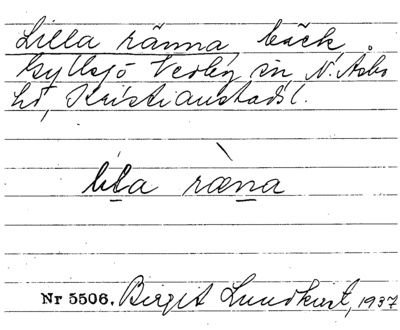 Lilla ränna, bäck,
Gyllsjö Verkey sn, N. Åsbo
hd, Kristianstads l.
lila ræna
Nr 5506. Birgit Lundkvist, 1937